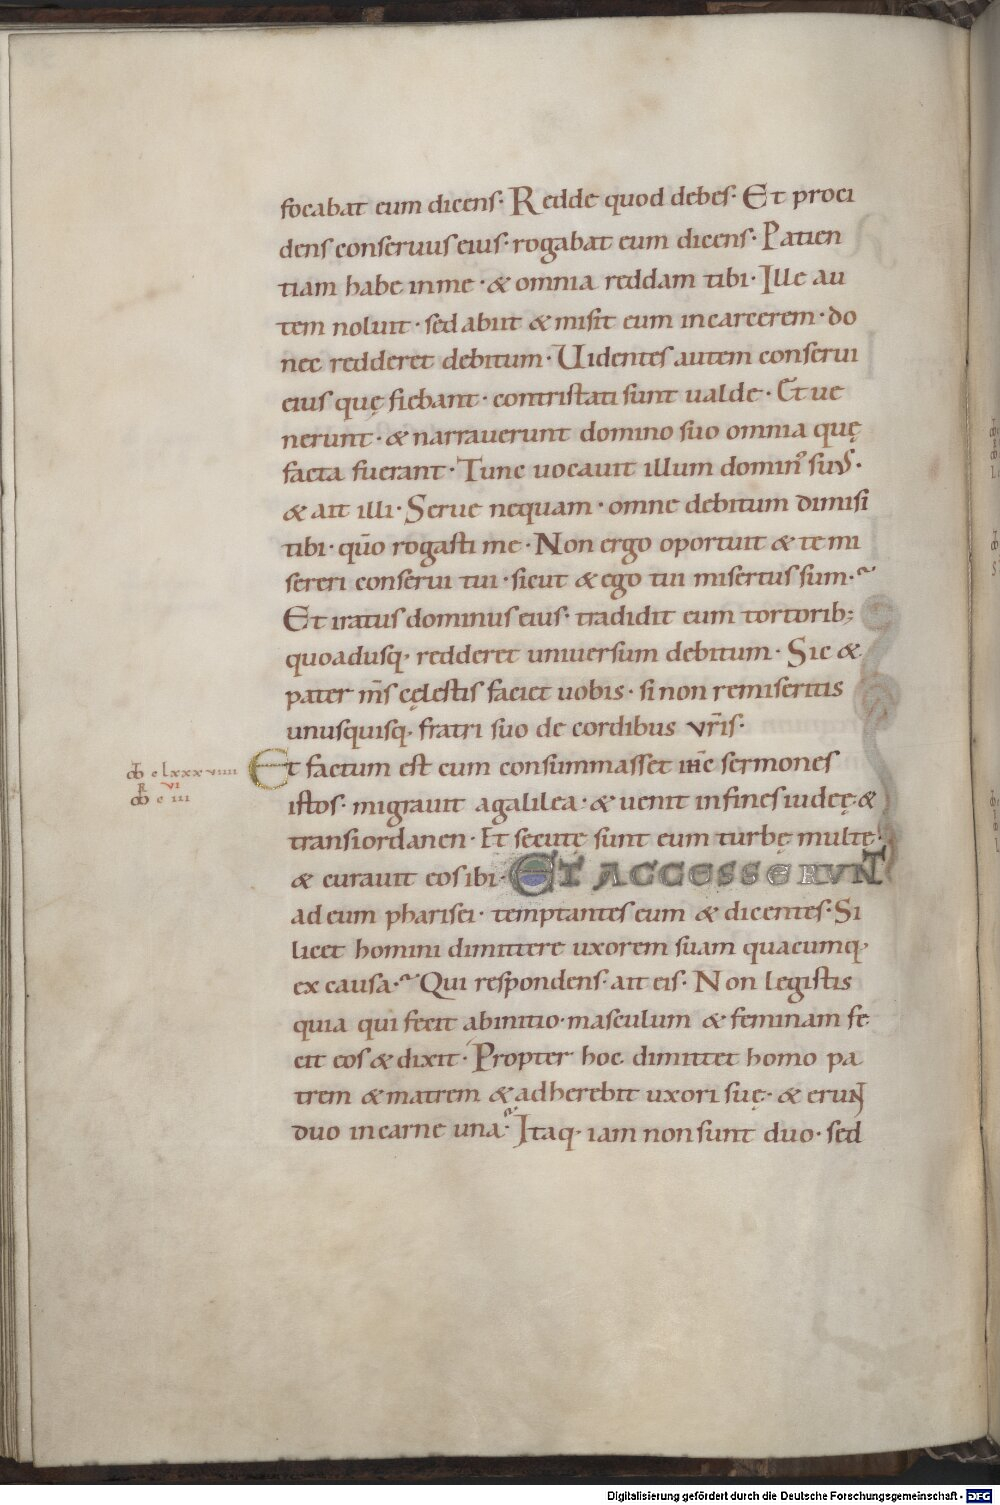 focabat eum dicens· Redde quod debes· Et proci
dens conseruus eius· rogabat eum dicens· Patien
tiam habe inme· & omnia reddam tibi· Ille au
tem noluit· sed abiit & misit eum incarcerem· do
nec redderet debitum· Uidentes autem conserui
eius quę fiebant· contristati sunt ualde· Et ue
nerunt· & narrauerunt domino suo omnia quę
facta fuerant· Tunc uocauit illum dominꝰ suus·
& ait illi· Serue nequam· omne debitum dimisi
tibi· qūo rogasti me· Non ergo oportuit & te mi
sereri conserui tui· sicut & ego tui misertus sum·
Et iratus dominus eius· tradidit eum tortorib;
quoadusq· redderet uniuersum debitum· Sic &
pater m̄s cęlestis faciet uobis· si non remiseritis
unusquisq· fratri suo de cordibus vr̄is·
Et factum est cum consummasset ih̄c sermones
istos· migrauit agalilea· & uenit infines iudeę &
transiordanen· Et secutę sunt eum turbę multę·
& curauit eos ibi· ET ACCESSERUNT
ad eum pharisei· temptantes eum & dicentes· Si
licet homini dimittere uxorem suam quacumq·
ex causa· Qui respondens· ait eis· Non legistis
quia qui fecit abinitio· masculum & feminam fe
cit eos & dixit· Propter hoc dimittet homo pa
trem & matrem & adherebit uxori suę· & erunt
duo incarne una· Itaq· iam non sunt duo· sed
c lxxxviiii
R VI
c iii
Digitalisierung gefördert durch die Deutsche Forschungsgemeinschaft - DFG